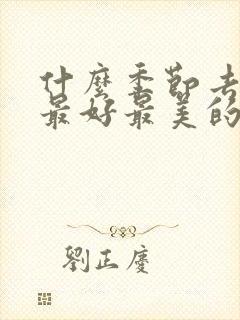 什麼季節去
最好最美的
劉正慶